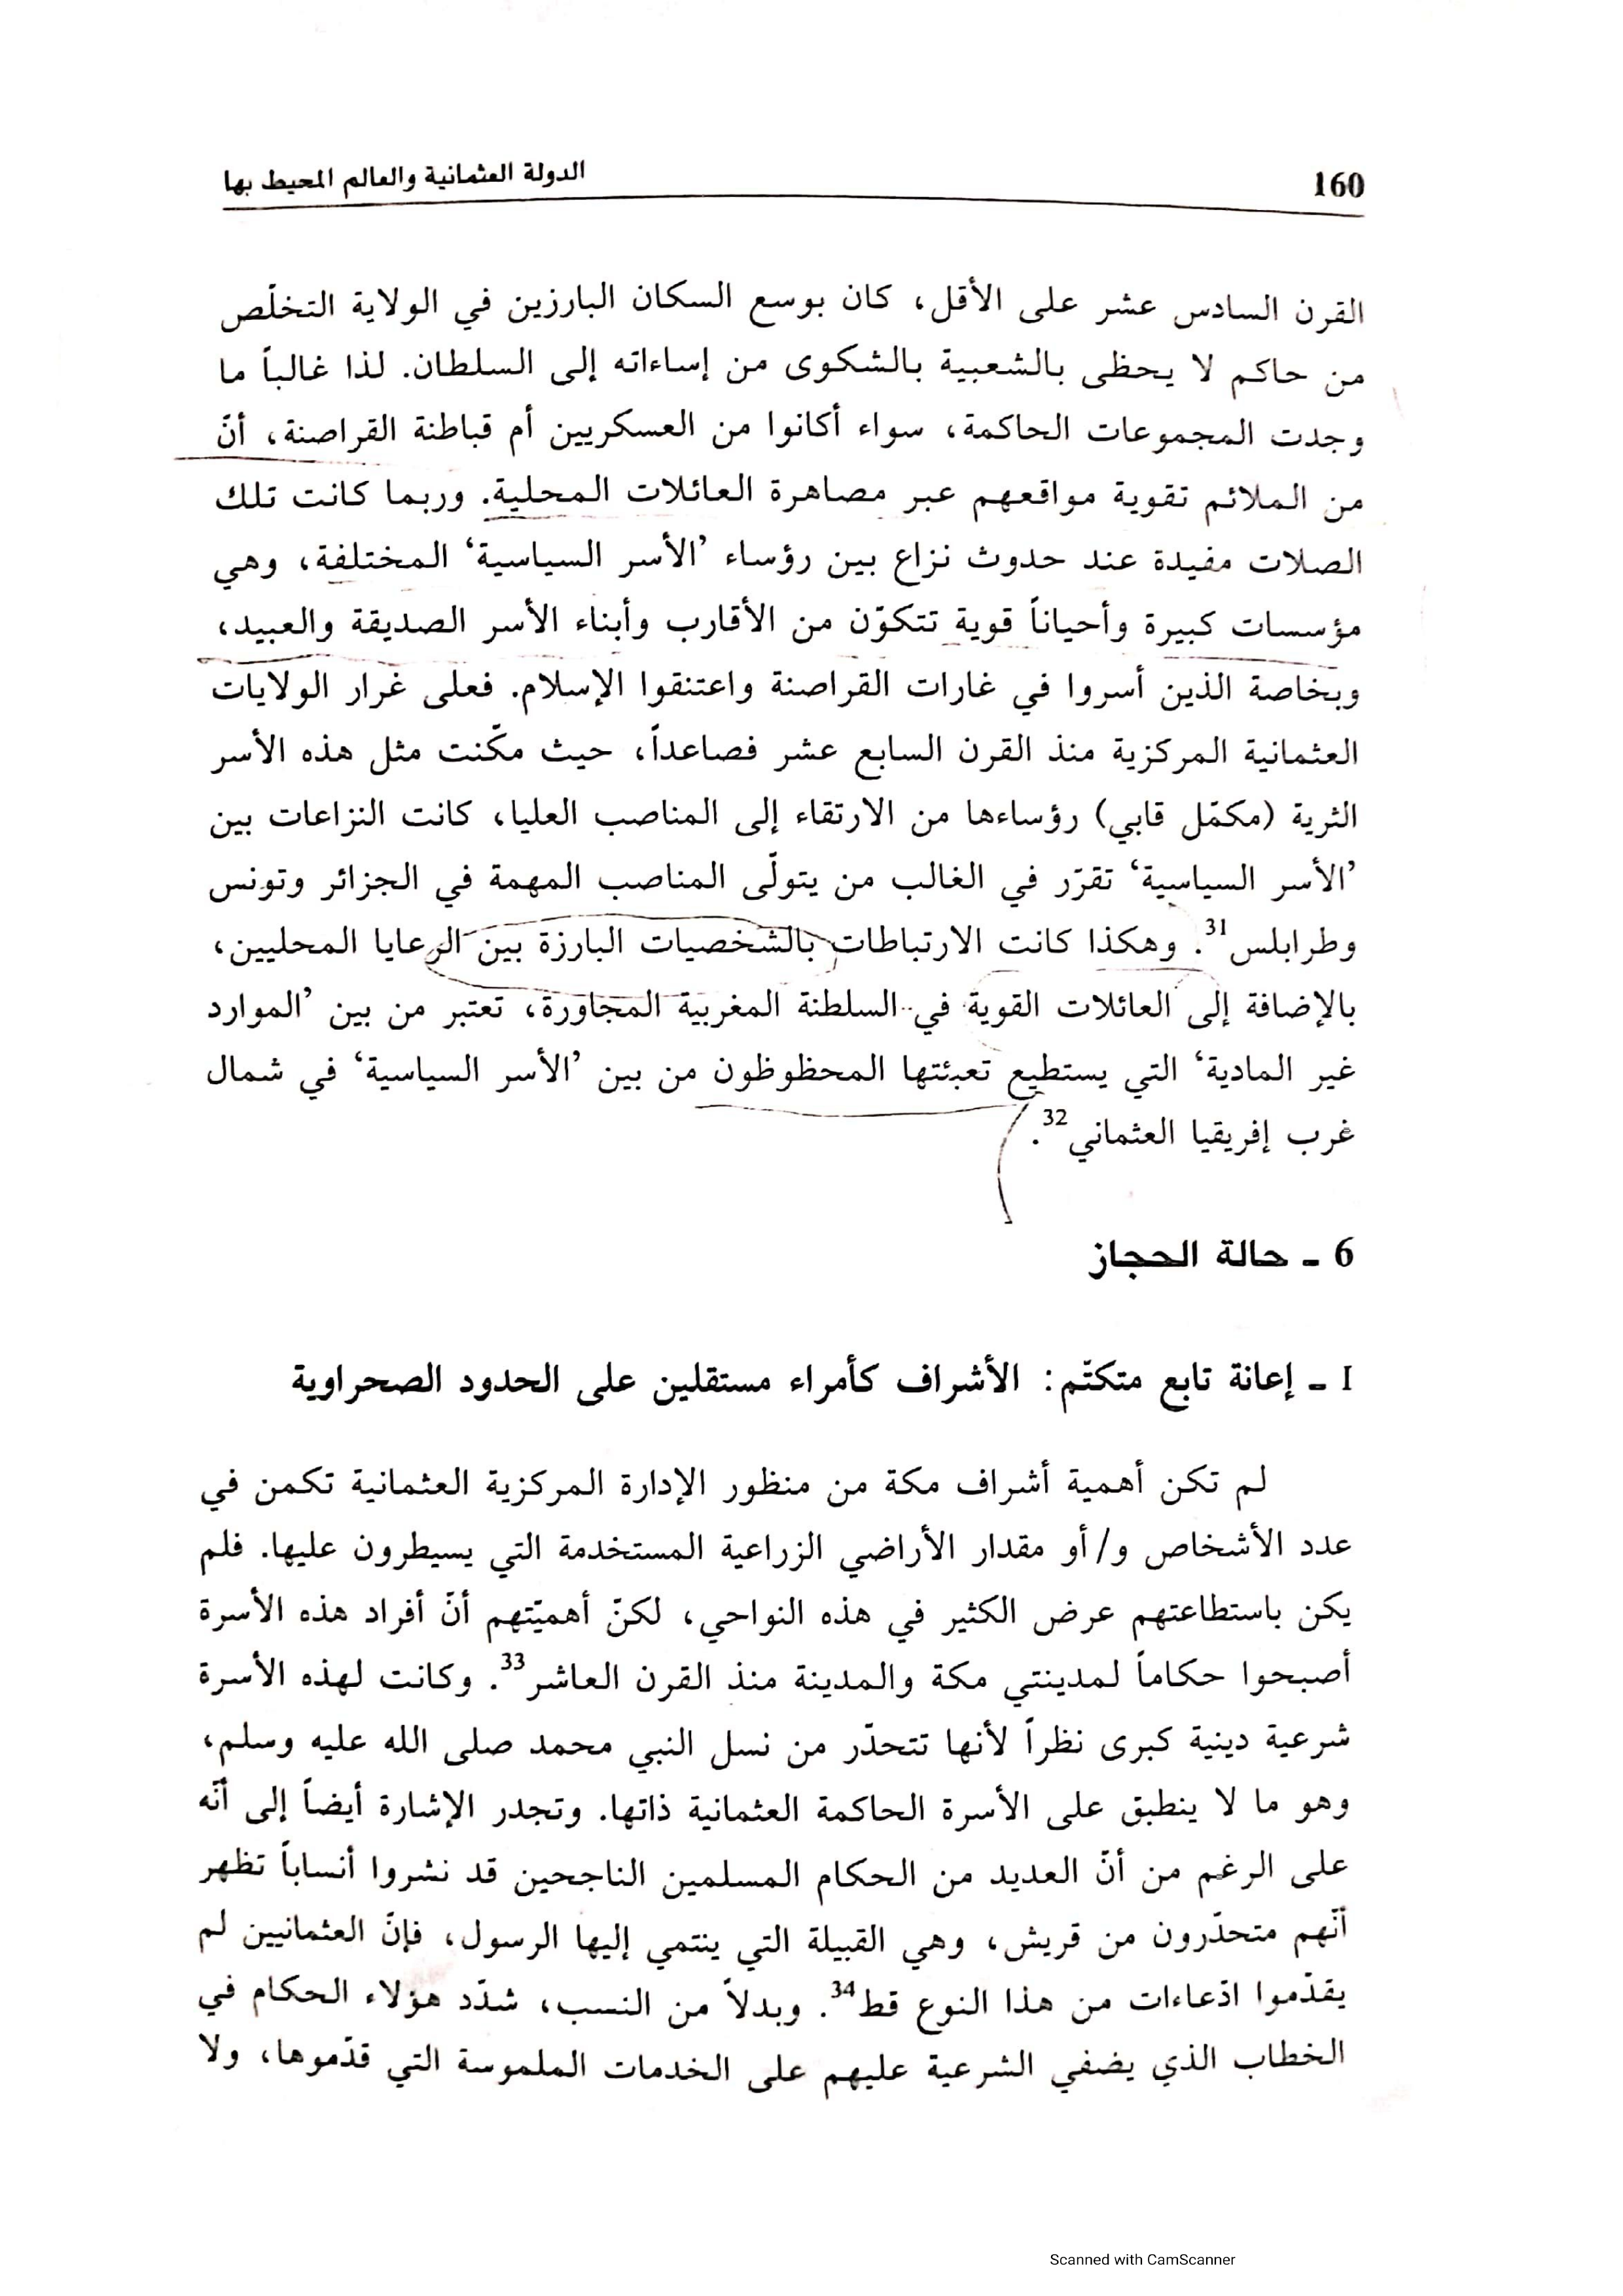 160
الدولة العثمانية والعالم المحيط بها
القرن السادس عشر على الأقل، كان بوسع السكان البارزين في الولاية التخلّص
من حاكم لا يحظى بالشعبية بالشكوى من إساءاته إلى السلطان. لذا غالباً ما
وجدت المجموعات الحاكمة، سواء أكانوا من العسكريين أم قباطنة القراصنة، أنّ
من الملائم تقوية مواقعهم عبر مصاهرة العائلات المحلية. وربما كانت تلك
الصلات مفيدة عند حدوث نزاع بين رؤساء ’الأسر السياسية‘ المختلفة، وهي
مؤسسات كبيرة وأحياناً قوية تتكوّن من الأقارب وأبناء الأسر الصديقة والعبيد،
وبخاصة الذين أسروا في غارات القراصنة واعتنقوا الإسلام. فعلى غرار الولايات
العثمانية المركزية منذ القرن السابع عشر فصاعداً، حيث مكّنت مثل هذه الأسر
الثرية (مكمّل قابي) رؤساءها من الارتقاء إلى المناصب العليا، كانت النزاعات بين
’الأسر السياسية‘ تقرّر في الغالب من يتولّى المناصب المهمة في الجزائر وتونس
وطرابلس31. وهكذا كانت الارتباطات بالشخصيات البارزة بين الرعايا المحليين،
بالإضافة إلى العائلات القوية في السلطنة المغربية المجاورة، تعتبر من بين ’الموارد
غير المادية‘ التي يستطيع تعبئتها المحظوظون من بين ’الأسر السياسية‘ في شمال
غرب إفريقيا العثماني32.
6 ـ حالة الحجاز
I ـ إعانة تابع متكتّم: الأشراف كأمراء مستقلين على الحدود الصحراوية
لم تكن أهمية أشراف مكة من منظور الإدارة المركزية العثمانية تكمن في
عدد الأشخاص و/أو مقدار الأراضي الزراعية المستخدمة التي يسيطرون عليها. فلم
يكن باستطاعتهم عرض الكثير في هذه النواحي، لكنّ أهميّتهم أنّ أفراد هذه الأسرة
أصبحوا حكاماً لمدينتي مكة والمدينة منذ القرن العاشر33. وكانت لهذه الأسرة
شرعية دينية كبرى نظراً لأنها تتحدّر من نسل النبي محمد صلى الله عليه وسلم،
وهو ما لا ينطبق على الأسرة الحاكمة العثمانية ذاتها. وتجدر الإشارة أيضاً إلى أنّه
على الرغم من أنّ العديد من الحكام المسلمين الناجحين قد نشروا أنساباً تظهر
أنّهم متحدّرون من قريش، وهي القبيلة التي ينتمي إليها الرسول، فإنّ العثمانيين لم
يقدّموا ادّعاءات من هذا النوع قط34. وبدلاً من النسب، شدّد هؤلاء الحكام في
الخطاب الذي يضفي الشرعية عليهم على الخدمات الملموسة التي قدّموها، ولا
Scanned with CamScanner